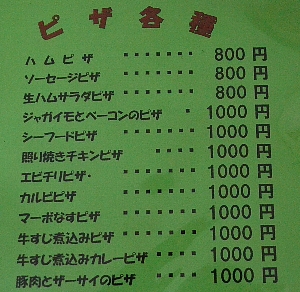 ピザ各種
ハムピザ ・・・・・・・ 800円
ソーセージピザ ・・・・・・ 800円
生ハムサラダピザ ・・・・・ 800円
ジャガイモとベーコンのピザ ・ 1000円
シーフードピザ ・・・・・・ 1000円
照り焼きチキンピザ ・・・・ 1000円
エビチリピザ・ ・・・・・・ 1000円
カルビピザ ・・・・・・・ 1000円
マーボなすピザ ・・・・・・ 1000円
牛すじ煮込みピザ ・・・・・ 1000円
牛すじ煮込みカレーピザ ・・・ 1000円
豚肉とザーサイのピザ ・・・・ 1000円